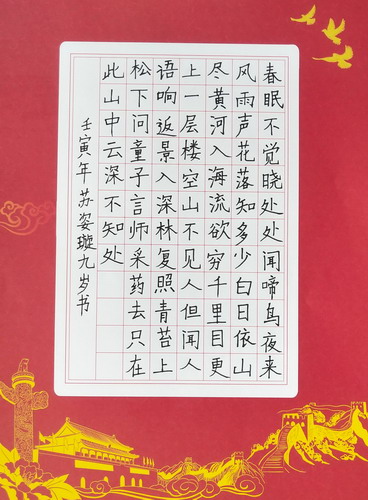 春眠不觉晓处处闻啼鸟夜来
风雨声花落知多少白日依山
尽黄河入海流欲穷千里目更
上一层楼空山不见人但闻人
语响返景入深林复照青苔上
松下问童子言师采药去只在
此山中云深不知处
壬寅年苏姿璇九岁书